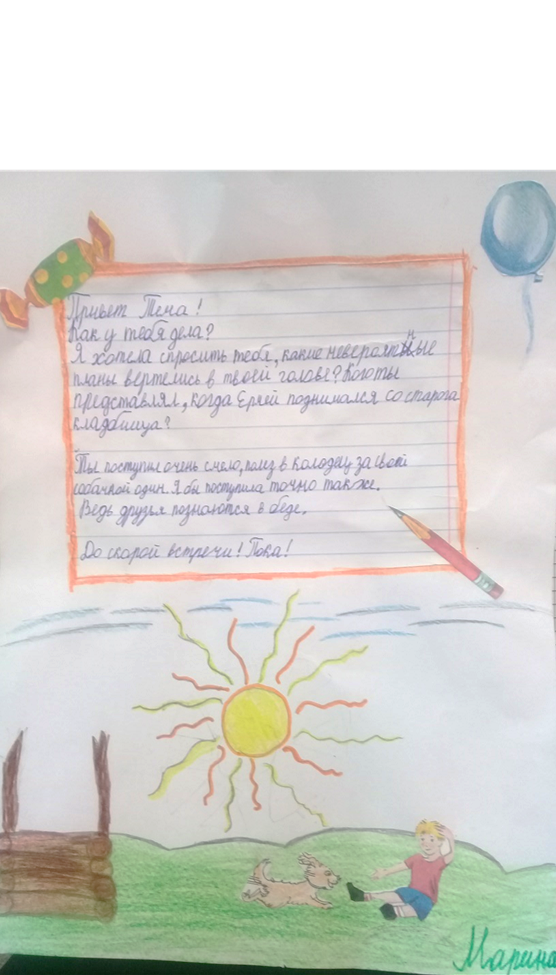 Привет Тема!
Как у тебя дела?
Я хотела спросить тебя, какие невероятные
планы вертелись в твоей голове? Кого ты
представлял, когда Еремй поднимался со старога
кладбища?
Ты поступил очень смело, полез в колодец за своей
собачкой один. Я бы поступила точно так же.
Ведь друзья познаются в беде.
До скорой встречи! Пока!
Марина